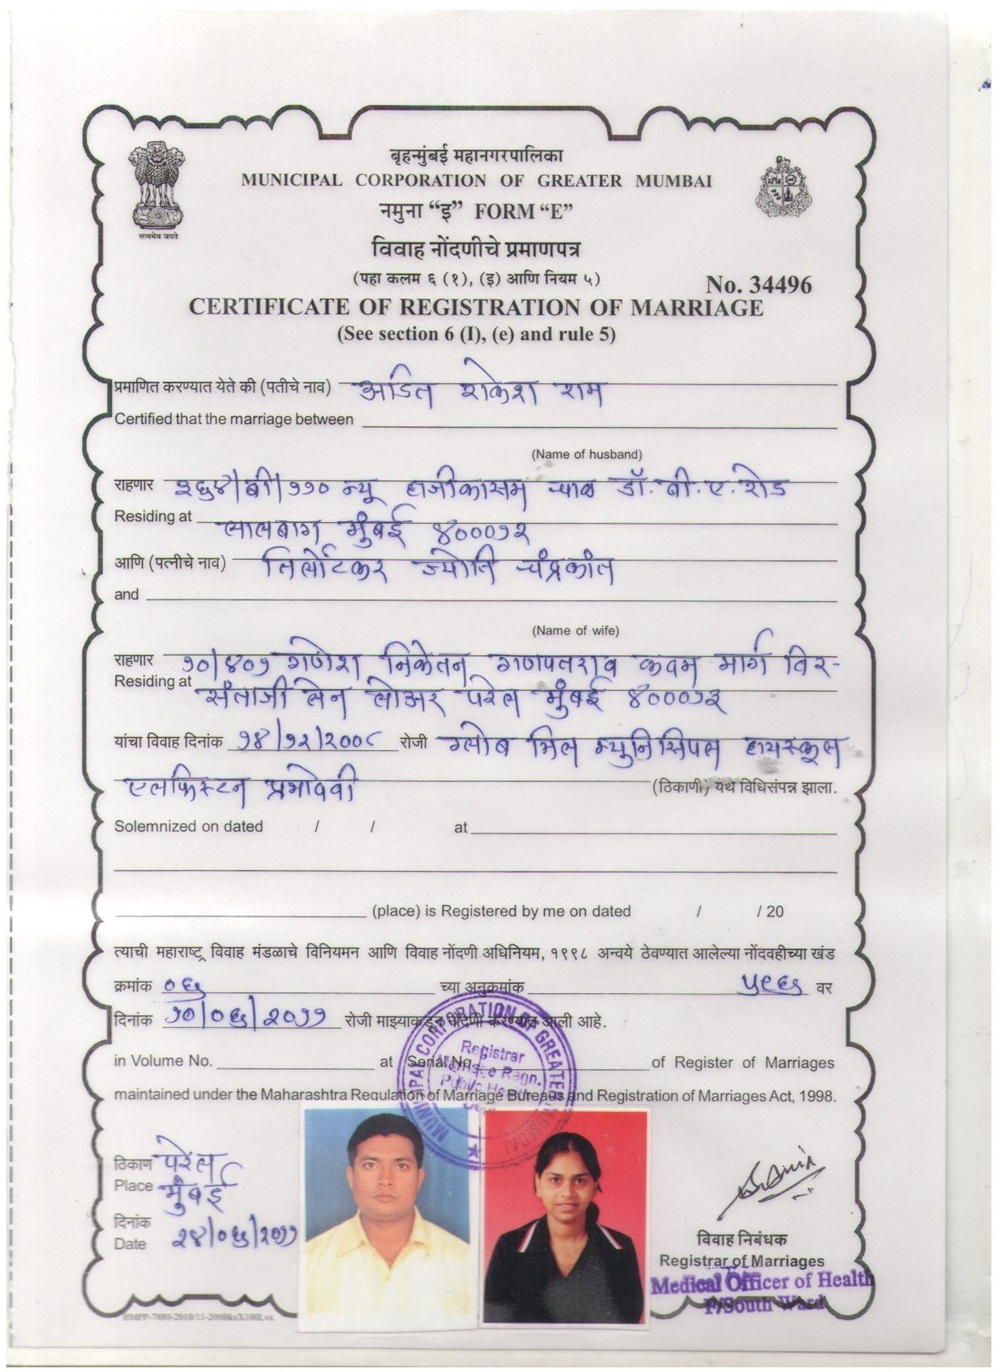 सत्यमेव जयते
बृहन्मुंबई महानगरपालिका
MUNICIPAL CORPORATION OF GREATER MUMBAI
नमुना “इ” FORM “E”
विवाह नोंदणीचे प्रमाणपत्र
(पहा कलम ६ (१), (इ) आणि नियम ५)
No. 34496
CERTIFICATE OF REGISTRATION OF MARRIAGE
(See section 6 (I), (e) and rule 5)
प्रमाणित करण्यात येते की (पतीचे नाव) अडित राकेश राम
Certified that the marriage between
(Name of husband)
राहणार २६४/बी/११० न्यू हाजीकासम चाळ डॉ. बी. ए. रोड
Residing at लालबाग मुंबई ४०००१२
आणि (पत्नीचे नाव) तिर्लोटकर ज्योति चंद्रकांत
and
(Name of wife)
राहणार १०/४०१ गणेश निकेतन गणपतराव कदम मार्ग विर-
Residing at संताजी लेन लोअर परेल मुंबई ४०००१३
यांचा विवाह दिनांक १४/१२/२००८ रोजी ग्लोब मिल म्युनिसिपल हायस्कूल
एलफिस्टन प्रभादेवी (ठिकाणी) येथे विधिसंपन्न झाला.
Solemnized on dated / / at
(place) is Registered by me on dated / / 20
त्याची महाराष्ट्र विवाह मंडळाचे विनियमन आणि विवाह नोंदणी अधिनियम, १९९८ अन्वये ठेवण्यात आलेल्या नोंदवहीच्या खंड
क्रमांक ०६ च्या अनुक्रमांक ५८६६ वर
दिनांक १०/०६/२०११ रोजी माझ्याकडून नोंदणी करण्यात आली आहे.
in Volume No. at Serial No. of Register of Marriages
maintained under the Maharashtra Regulation of Marriage Bureaus and Registration of Marriages Act, 1998.
MUNICIPAL CORPORATION OF GREATER MUMBAI
Registrar
Marriage Regn.
Public Health
ठिकाण परेल
Place मुंबई
दिनांक
Date २४/०६/२०११
विवाह निबंधक
Registrar of Marriages
Medical Officer of Health
F/South Ward